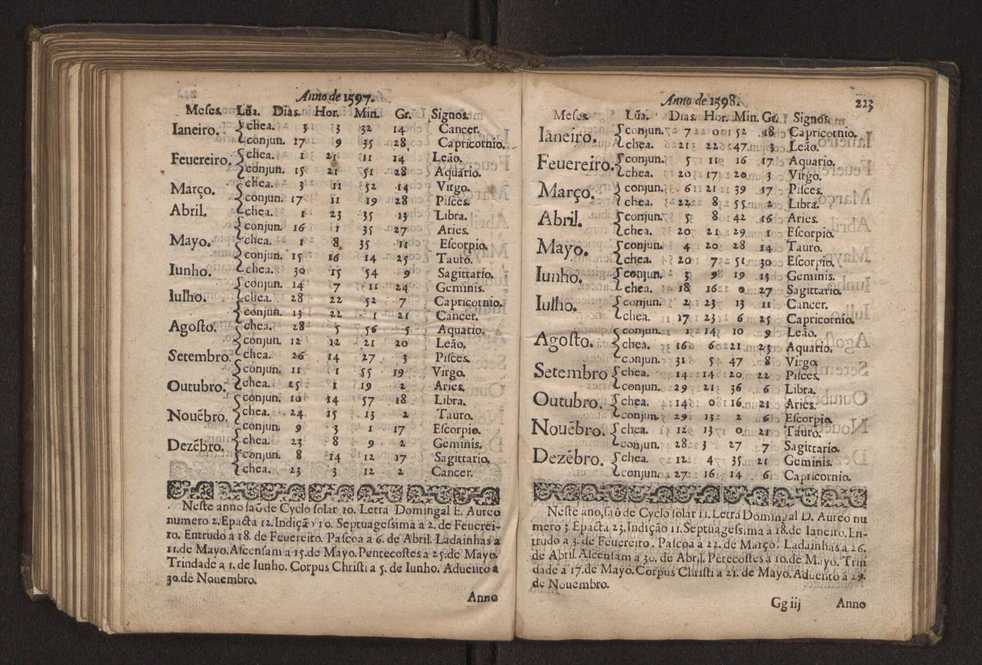 Anno de 1597.
Meses. Lũa. Dias. Hor. Min. Gr. Signos.
Ianeiro. chea. 3 3 32 14 Cancer.
conjun. 17 9 35 28 Capricornio.
Feuereiro. chea. 1 21 11 14 Leão.
conjun. 15 21 51 28 Aquario.
Março. chea. 3 11 52 14 Virgo.
conjun. 17 11 19 28 Pisces.
Abril. chea. 1 23 35 13 Libra.
conjun. 16 1 35 27 Aries.
Mayo. chea. 1 8 35 11 Escorpio.
conjun. 15 16 14 25 Tauro.
Iunho. chea. 30 15 54 9 Sagittario.
conjun. 14 7 11 24 Geminis.
Iulho. chea. 28 22 52 7 Capricornio.
conjun. 13 22 1 21 Cancer.
Agosto. chea. 28 5 56 5 Aquario.
conjun. 12 12 21 20 Leão.
Setembro. chea. 26 14 27 3 Pisces.
conjun. 11 1 55 19 Virgo.
Outubro. chea. 25 1 19 2 Aries.
conjun. 10 14 57 18 Libra.
Nouẽbro. chea. 24 15 13 2 Tauro.
conjun. 9 3 1 17 Escorpio.
Dezẽbro. chea. 23 8 9 2 Geminis.
conjun. 8 14 12 17 Sagittario.
chea. 23 3 12 2 Cancer.
Neste anno saõ de Cyclo solar 10. Letra Domingal E. Aureo
numero 2. Epacta 12. Indiçã 10. Septuagessima a 2. de Feuerei-
ro. Entrudo a 18. de Feuereiro. Pascoa a 6. de Abril. Ladainhas a
11. de Mayo. Ascensam a 15. de Mayo. Pentecostes a 25. de Mayo.
Trindade a 1. de Iunho. Corpus Christi a 5. de Iunho. Aduento a
30. de Nouembro.
Anno
Anno de 1598.
223
Meses. Lũa. Dias. Hor. Min. Gr. Signos.
Ianeiro. conjun. 7 0 52 18 Capricornio.
chea. 21 22 47 3 Leão.
Feuereiro. conjun. 5 11 16 17 Aquario.
chea. 20 17 20 3 Virgo.
Março. conjun. 6 21 39 17 Pisces.
chea. 22 8 55 2 Libra.
Abril. conjun. 5 8 42 16 Aries.
chea. 20 21 29 1 Escorpio.
Mayo. conjun. 4 20 28 14 Tauro.
chea. 20 7 51 30 Escorpio.
Iunho. conjun. 3 9 19 13 Geminis.
chea. 18 16 0 27 Sagittario.
Iulho. conjun. 2 23 13 11 Cancer.
chea. 17 23 6 25 Capricornio.
Agosto. conjun. 1 14 10 9 Leão.
chea. 16 6 21 23 Aquario.
conjun. 31 5 47 8 Virgo.
Setembro chea. 14 14 20 22 Pisces.
conjun. 29 21 36 6 Libra.
Outubro. chea. 14 0 16 21 Aries.
conjun. 29 13 2 6 Escorpio.
Nouẽbro. chea. 12 13 0 21 Tauro.
conjun. 28 3 27 7 Sagittario.
Dezẽbro. chea. 12 4 35 21 Geminis.
conjun. 27 16 14 6 Capricornio.
Neste ano, saõ de Cyclo solar 11. Letra Domingal D. Aureo nu
mero 3. Epacta 23. Indição 11. Septuagessima a 18. de Ianeiro. En-
trudo a 3. de Feuereiro. Pascoa a 22. de Março. Ladainhas a 26.
de Abril. Ascensam a 30. de Abril. Pẽtecostes a 10. de Mayo. Trin
dade a 17. de Mayo. Corpus Christi a 21. de Mayo. Aduento a 29.
de Nouembro.
Gg iij Anno